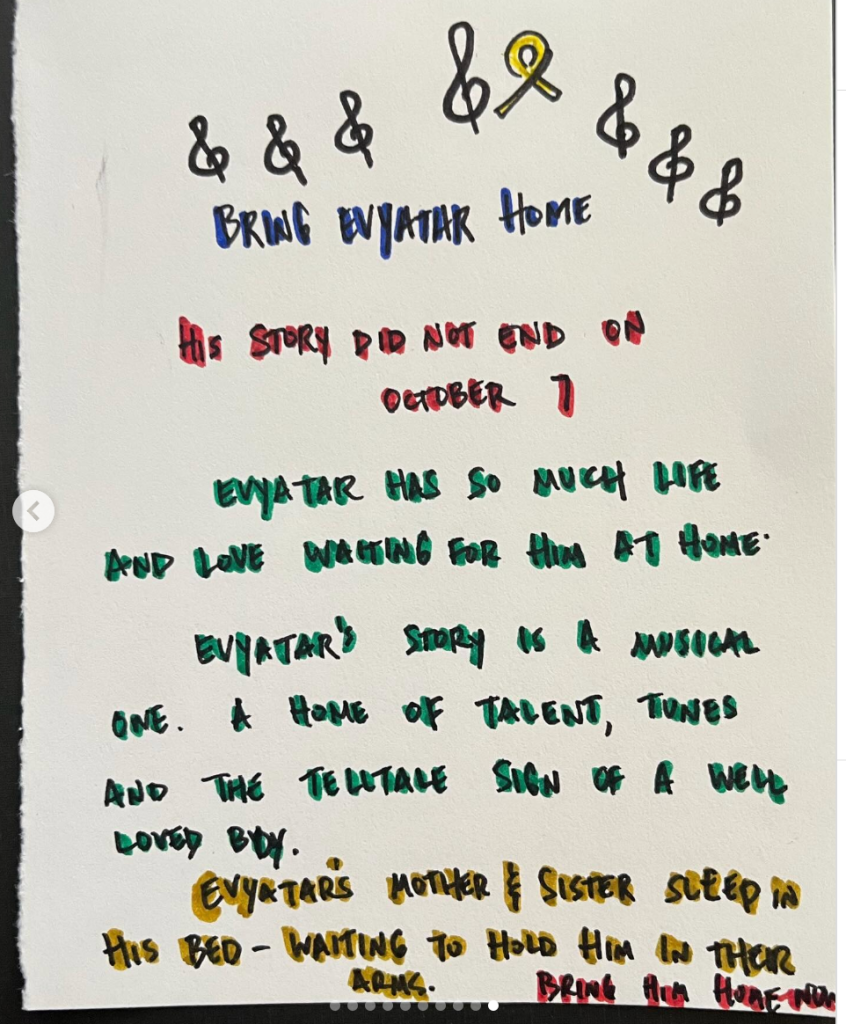 BRING EVYATAR HOME
HIS STORY DID NOT END ON
OCTOBER 7
EVYATAR HAS SO MUCH LIFE
AND LOVE WAITING FOR HIM AT HOME.
EVYATAR'S STORY IS A MUSICAL
ONE. A HOME OF TALENT, TUNES
AND THE TELLTALE SIGN OF A WELL
LOVED BOY.
EVYATAR'S MOTHER & SISTER SLEEP IN
HIS BED - WAITING TO HOLD HIM IN THEIR
ARMS. BRING HIM HOME NOW